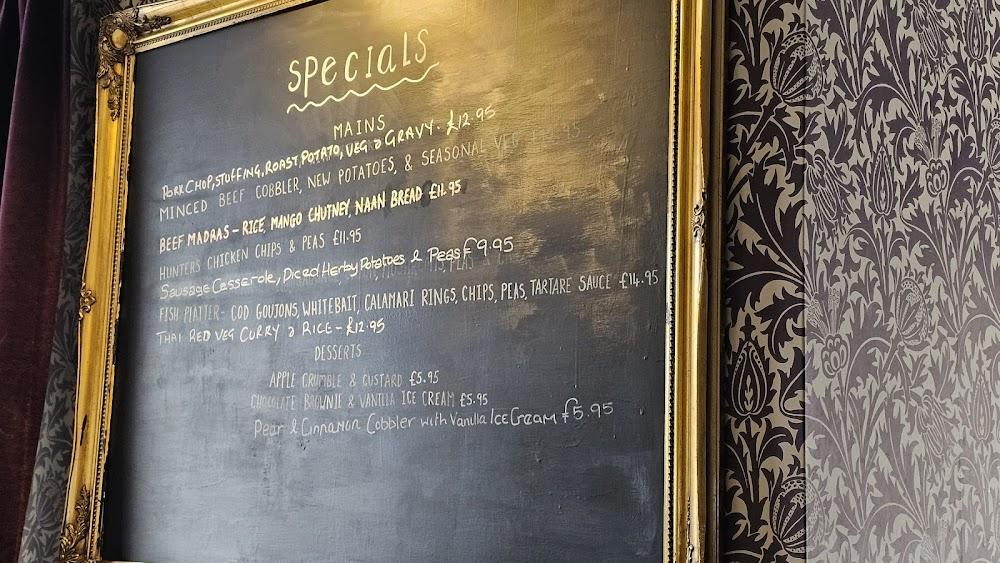 Specials
MAINS
PORK CHOP, STUFFING, ROAST POTATO, VEG & GRAVY. £12.95
MINCED BEEF COBBLER, NEW POTATOES, & SEASONAL VEG
BEEF MADRAS - RICE, MANGO CHUTNEY, NAAN BREAD £11.95
HUNTERS CHICKEN CHIPS & PEAS £11.95
Sausage Casserole, Diced Herby Potatoes & Peas £9.95
FISH PLATTER- COD GOUJONS, WHITEBAIT, CALAMARI RINGS, CHIPS, PEAS, TARTARE SAUCE £14.95
THAI RED VEG CURRY & RICE - £12.95
DESSERTS
APPLE CRUMBLE & CUSTARD £5.95
CHOCOLATE BROWNIE & VANILLA ICE CREAM £5.95
Pear & Cinnamon Cobbler with Vanilla Ice Cream £5.95